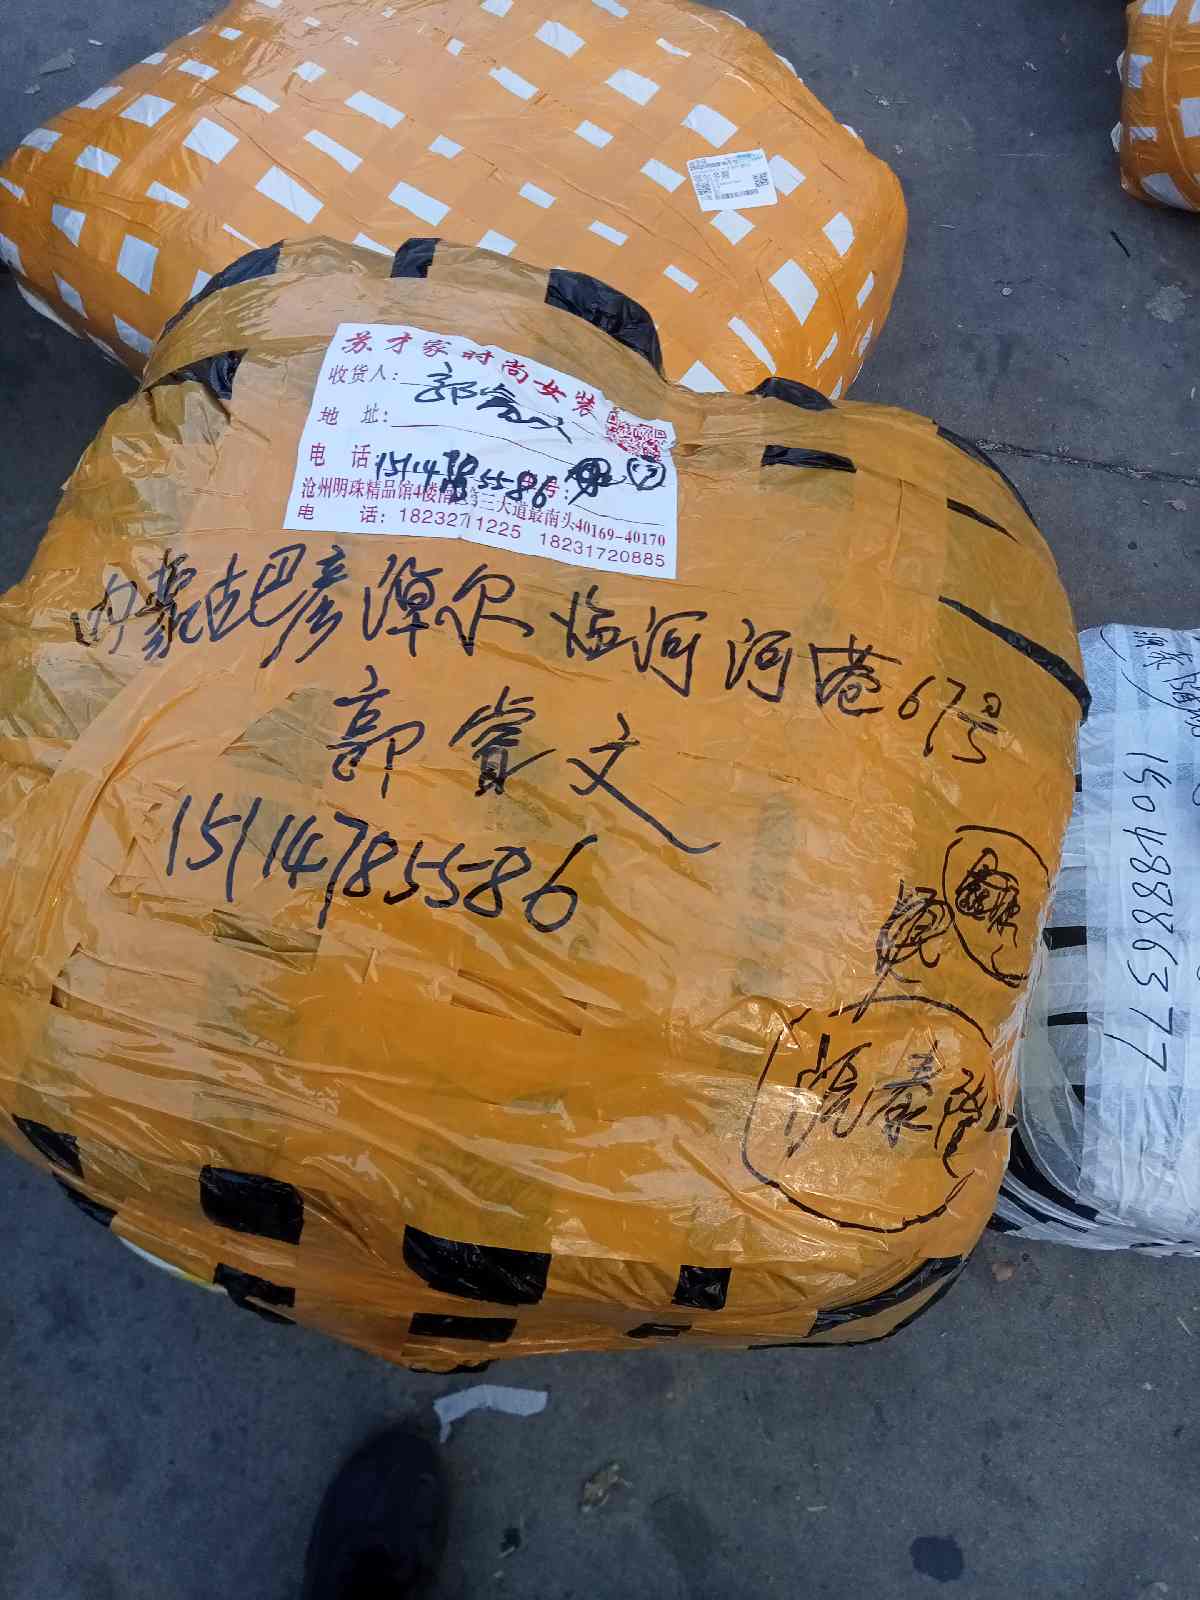 苏才家时尚女装
收货人：郭睿文
地 址：
电 话：15114785586
沧州明珠精品馆4楼
第三大道最南头40169-40170
电 话：18232711225 18231720885
内蒙古巴彦淖尔临河河港67号
郭睿文
15114785586
皖泰隆
15048886377